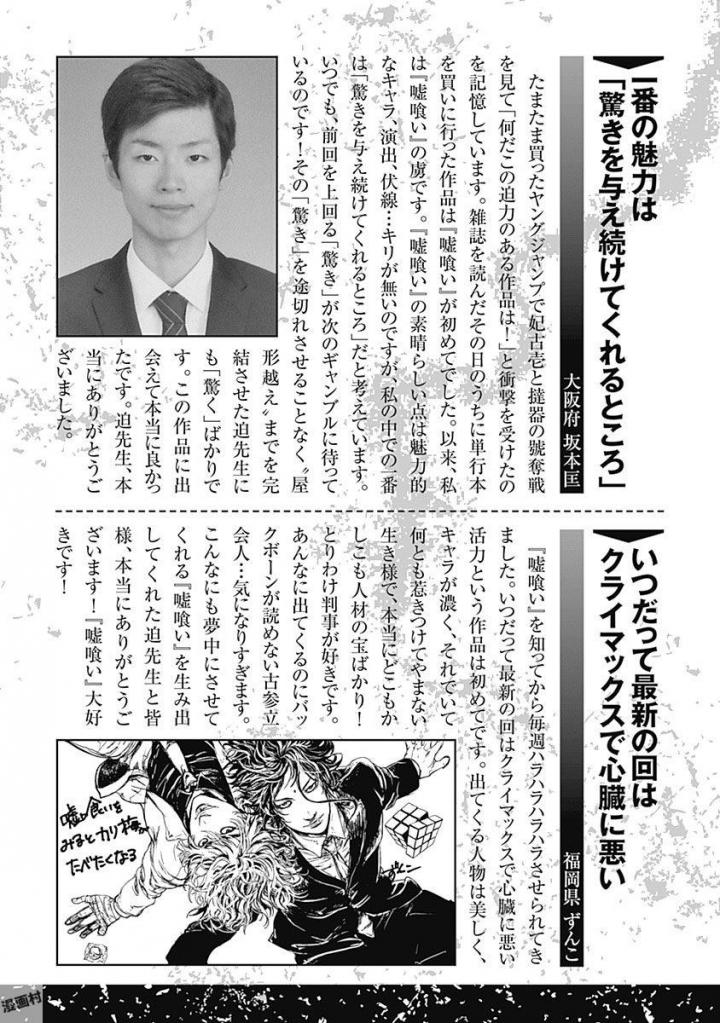 一番の魅力は
「驚きを与え続けてくれるところ」
大阪府 坂本匡
たまたま買ったヤングジャンプで妃古壱と撻器の號奪戦
を見て「何だこの迫力のある作品は!」と衝撃を受けたの
を記憶しています。雑誌を読んだその日のうちに単行本
を買いに行った作品は『嘘喰い』が初めてでした。以来、私
は『嘘喰い』の虜です。『嘘喰い』の素晴らしい点は魅力的
なキャラ、演出、伏線…キリが無いのですが、私の中での一番
は「驚きを与え続けてくれるところ」だと考えています。
いつでも、前回を上回る「驚き」が次のギャンブルに待って
いるのです!その「驚き」を途切れさせることなく〝屋
形越え〟までを完
結させた迫先生に
も「驚く」ばかりで
す。この作品に出
会えて本当に良かっ
たです。迫先生、本
当にありがとうご
ざいました。
いつだって最新の回は
クライマックスで心臓に悪い
福岡県 ずんこ
『嘘喰い』を知ってから毎週ハラハラハラハラさせられてき
ました。いつだって最新の回はクライマックスで心臓に悪い
活力という作品は初めてです。出てくる人物は美しく、
キャラが濃く、それでいて
何とも惹きつけてやまない
生き様で、本当にどこもか
しこも人材の宝ばかり!
とりわけ判事が好きです。
あんなに出てくるのにバッ
クボーンが読めない古参立
会人…気になりすぎます。
こんなにも夢中にさせて
くれる『嘘喰い』を生み出
してくれた迫先生と皆
様、本当にありがとうご
ざいます!『嘘喰い』大好
きです!
嘘喰いを
みるとカリ梅
たべたくなる
ずんこ
漫画村